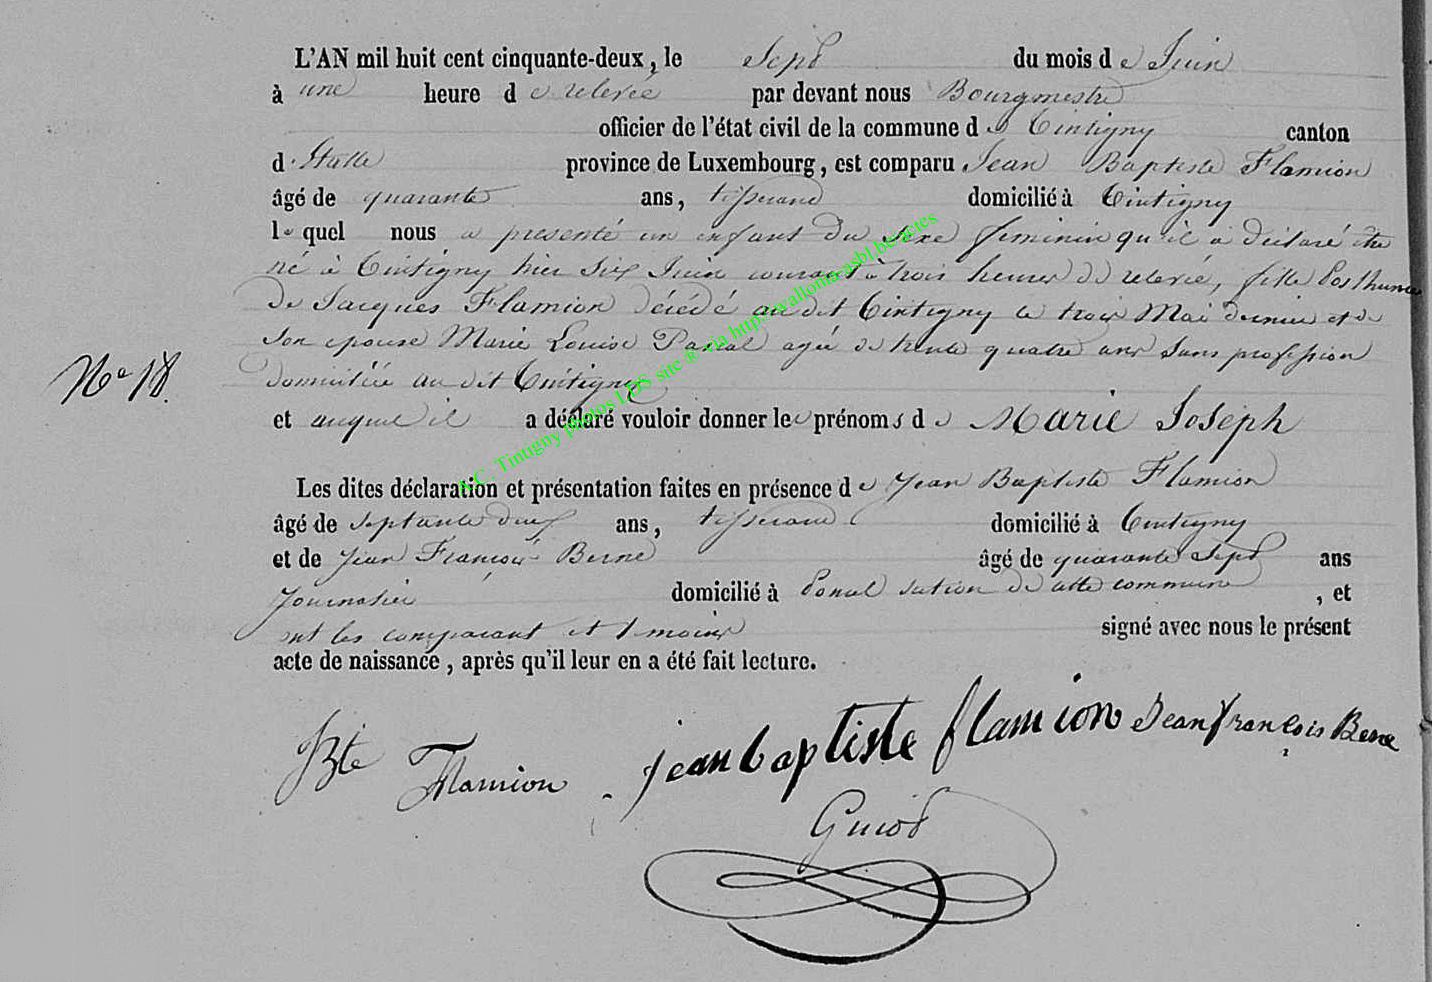 L'AN mil huit cent cinquante-deux, le Sept du mois de Juin
à une heure de relevée par devant nous Bourgmestre
officier de l'état civil de la commune de Tintigny canton
d'Etalle province de Luxembourg, est comparu Jean Baptiste Flamion
âgé de quarante ans, tisserand domicilié à Tintigny
lequel nous a presenté un enfant du sexe feminin qu'il a déclaré être
né à Tintigny hier Six Juin courant à trois heures de relevée, fille Posthume
de Jacques Flamion décédé au dit Tintigny le trois Mai dernier et de
son epouse Marie Louise agée de trente quatre ans sans profession
domiciliée au dit Tintigny
No 18.
et auquel il a déclaré vouloir donner les prénoms de Marie Joseph
Les dites déclaration et présentation faites en présence de Jean Baptiste Flamion
âgé de septante deux ans, tisserand domicilié à Tintigny
et de Jean François Berne âgé de quarante Sept ans
Journalier domicilié à Poncel section de cette commune, et
ont les comparant et temoins signé avec nous le présent
acte de naissance, après qu'il leur en a été fait lecture.
JBte Flamion jean baptiste flamion Jean françois Berne
Guiot
A.C. Tintigny photos LDS site ® via http://wallonia-asbl.be/actes